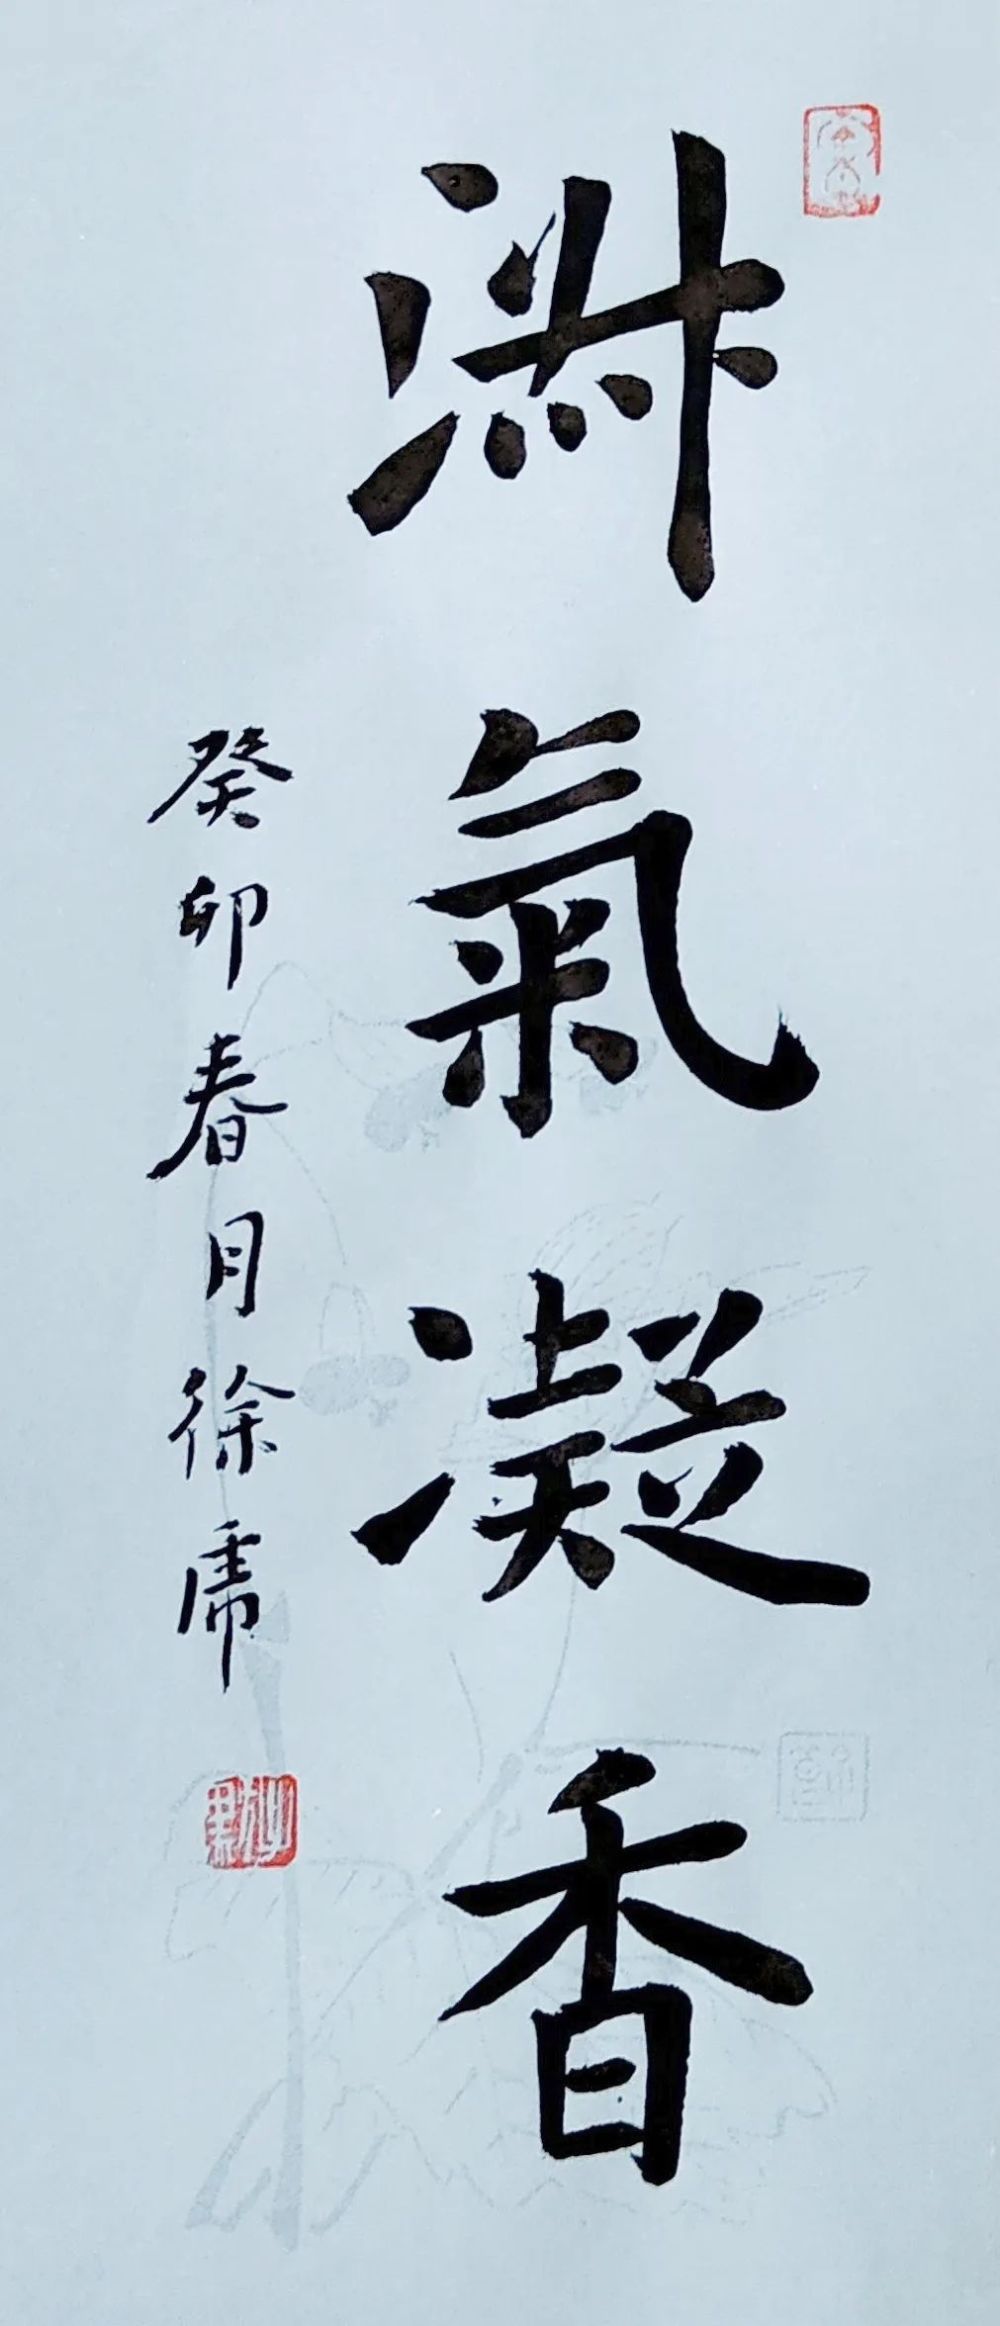 淑氣凝香
癸卯春月徐